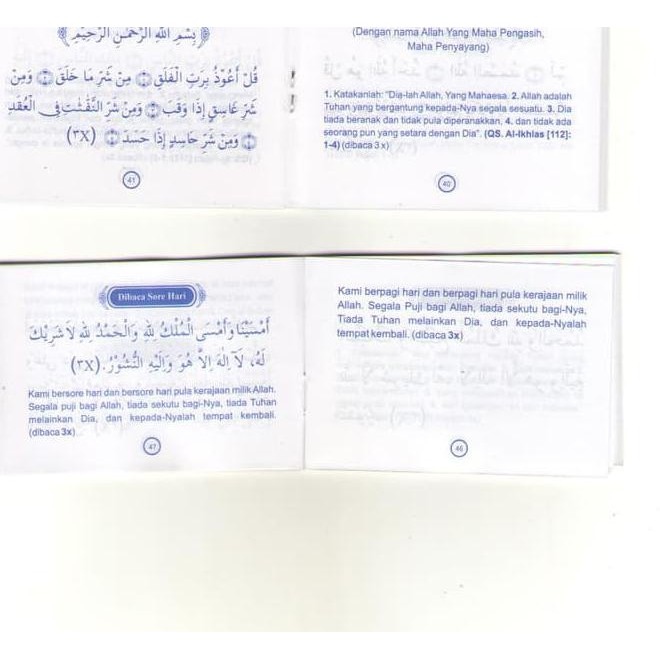 (Dengan nama Allah Yang Maha Pengasih,
Maha Penyayang)
1. Katakanlah: "Dia-lah Allah, Yang Mahaesa. 2. Allah adalah
Tuhan yang bergantung kepada-Nya segala sesuatu. 3. Dia
tiada beranak dan tidak pula diperanakkan, 4. dan tidak ada
seorang pun yang setara dengan Dia". (QS. Al-Ikhlas [112]:
1-4) (dibaca 3x)
40
بِسْمِ اللهِ الرَّحْمٰنِ الرَّحِيْمِ
قُلْ أَعُوْذُ بِرَبِّ الْفَلَقِ ۝١ مِنْ شَرِّ مَا خَلَقَ ۝٢ وَمِنْ
شَرِّ غَاسِقٍ إِذَا وَقَبَ ۝٣ وَمِنْ شَرِّ النَّفّٰثٰتِ فِى الْعُقَدِ
۝٤ وَمِنْ شَرِّ حَاسِدٍ إِذَا حَسَدَ ۝٥ (٣X)
41
Kami berpagi hari dan berpagi hari pula kerajaan milik
Allah. Segala Puji bagi Allah, tiada sekutu bagi-Nya,
Tiada Tuhan melainkan Dia, dan kepada-Nyalah
tempat kembali. (dibaca 3x)
46
Dibaca Sore Hari
أَمْسَيْنَا وَأَمْسَى الْمُلْكُ لِلّٰهِ وَالْحَمْدُ لِلّٰهِ لاَ شَرِيْكَ
لَهُ، لَآ إِلٰهَ إِلاَّ هُوَ وَإِلَيْهِ النُّشُوْرُ. (٣X)
Kami bersore hari dan bersore hari pula kerajaan milik Allah.
Segala puji bagi Allah, tiada sekutu bagi-Nya, tiada Tuhan
melainkan Dia, dan kepada-Nyalah tempat kembali.
(dibaca 3x)
47